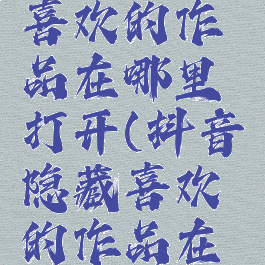 喜欢的作
品在哪里
打开(抖音
隐藏喜欢
的作品在